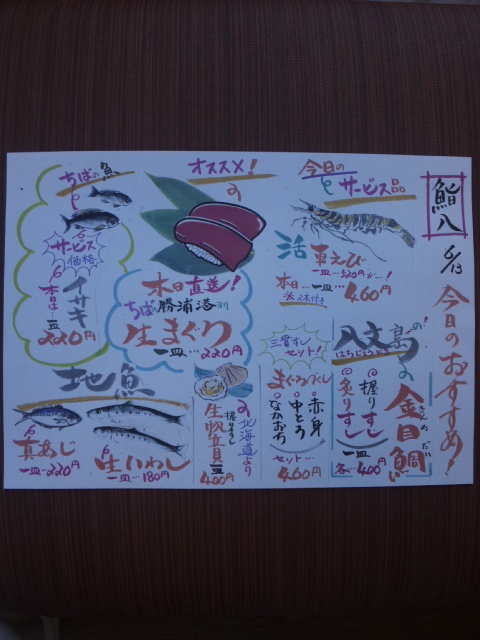 鮨八
6/13
今日のおすすめ!
今日の
サービス品
活車えび
一皿…520円が…!
本日…一皿…460円
オススメ!
本日直送!
ちば勝浦港ヨリ
生まぐろ
一皿…220円
ちばの魚
サービス
価格
イサキ
本日は…一皿
220円
八丈島の!
はちじょうじま
金目鯛
きんめだい
握りすし
炙りすし
一皿
各…400円
三貫すし
セット!
まぐろづくし
赤身
中とろ
なかおち
セット…
460円
北海道より
生帆立貝
握りすし
一皿
400円
地魚
真あじ
一皿…220円
生いわし
一皿…180円